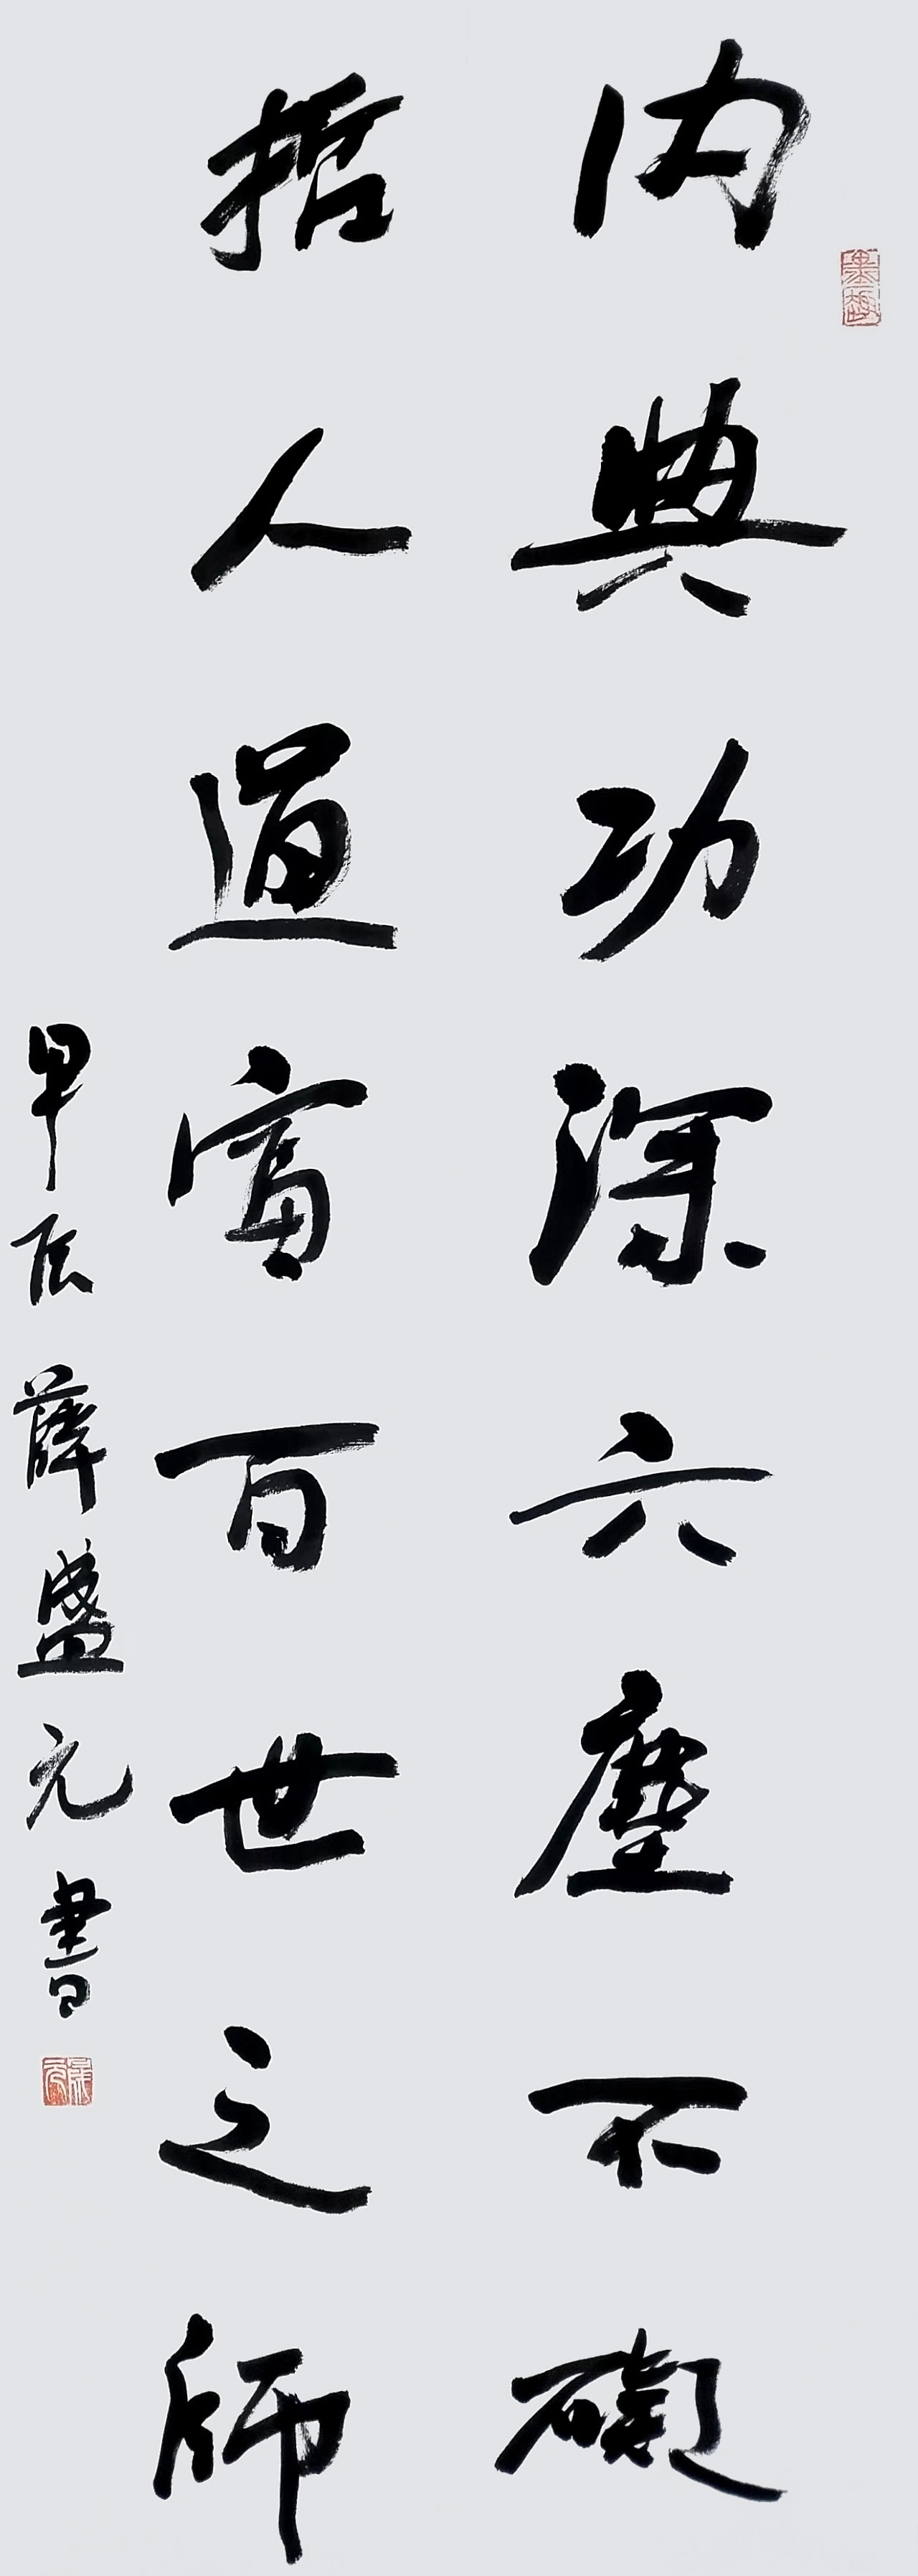 内典功深六塵不礙
哲人道富百世之師
甲辰薛盛元書
墨趣
盛元